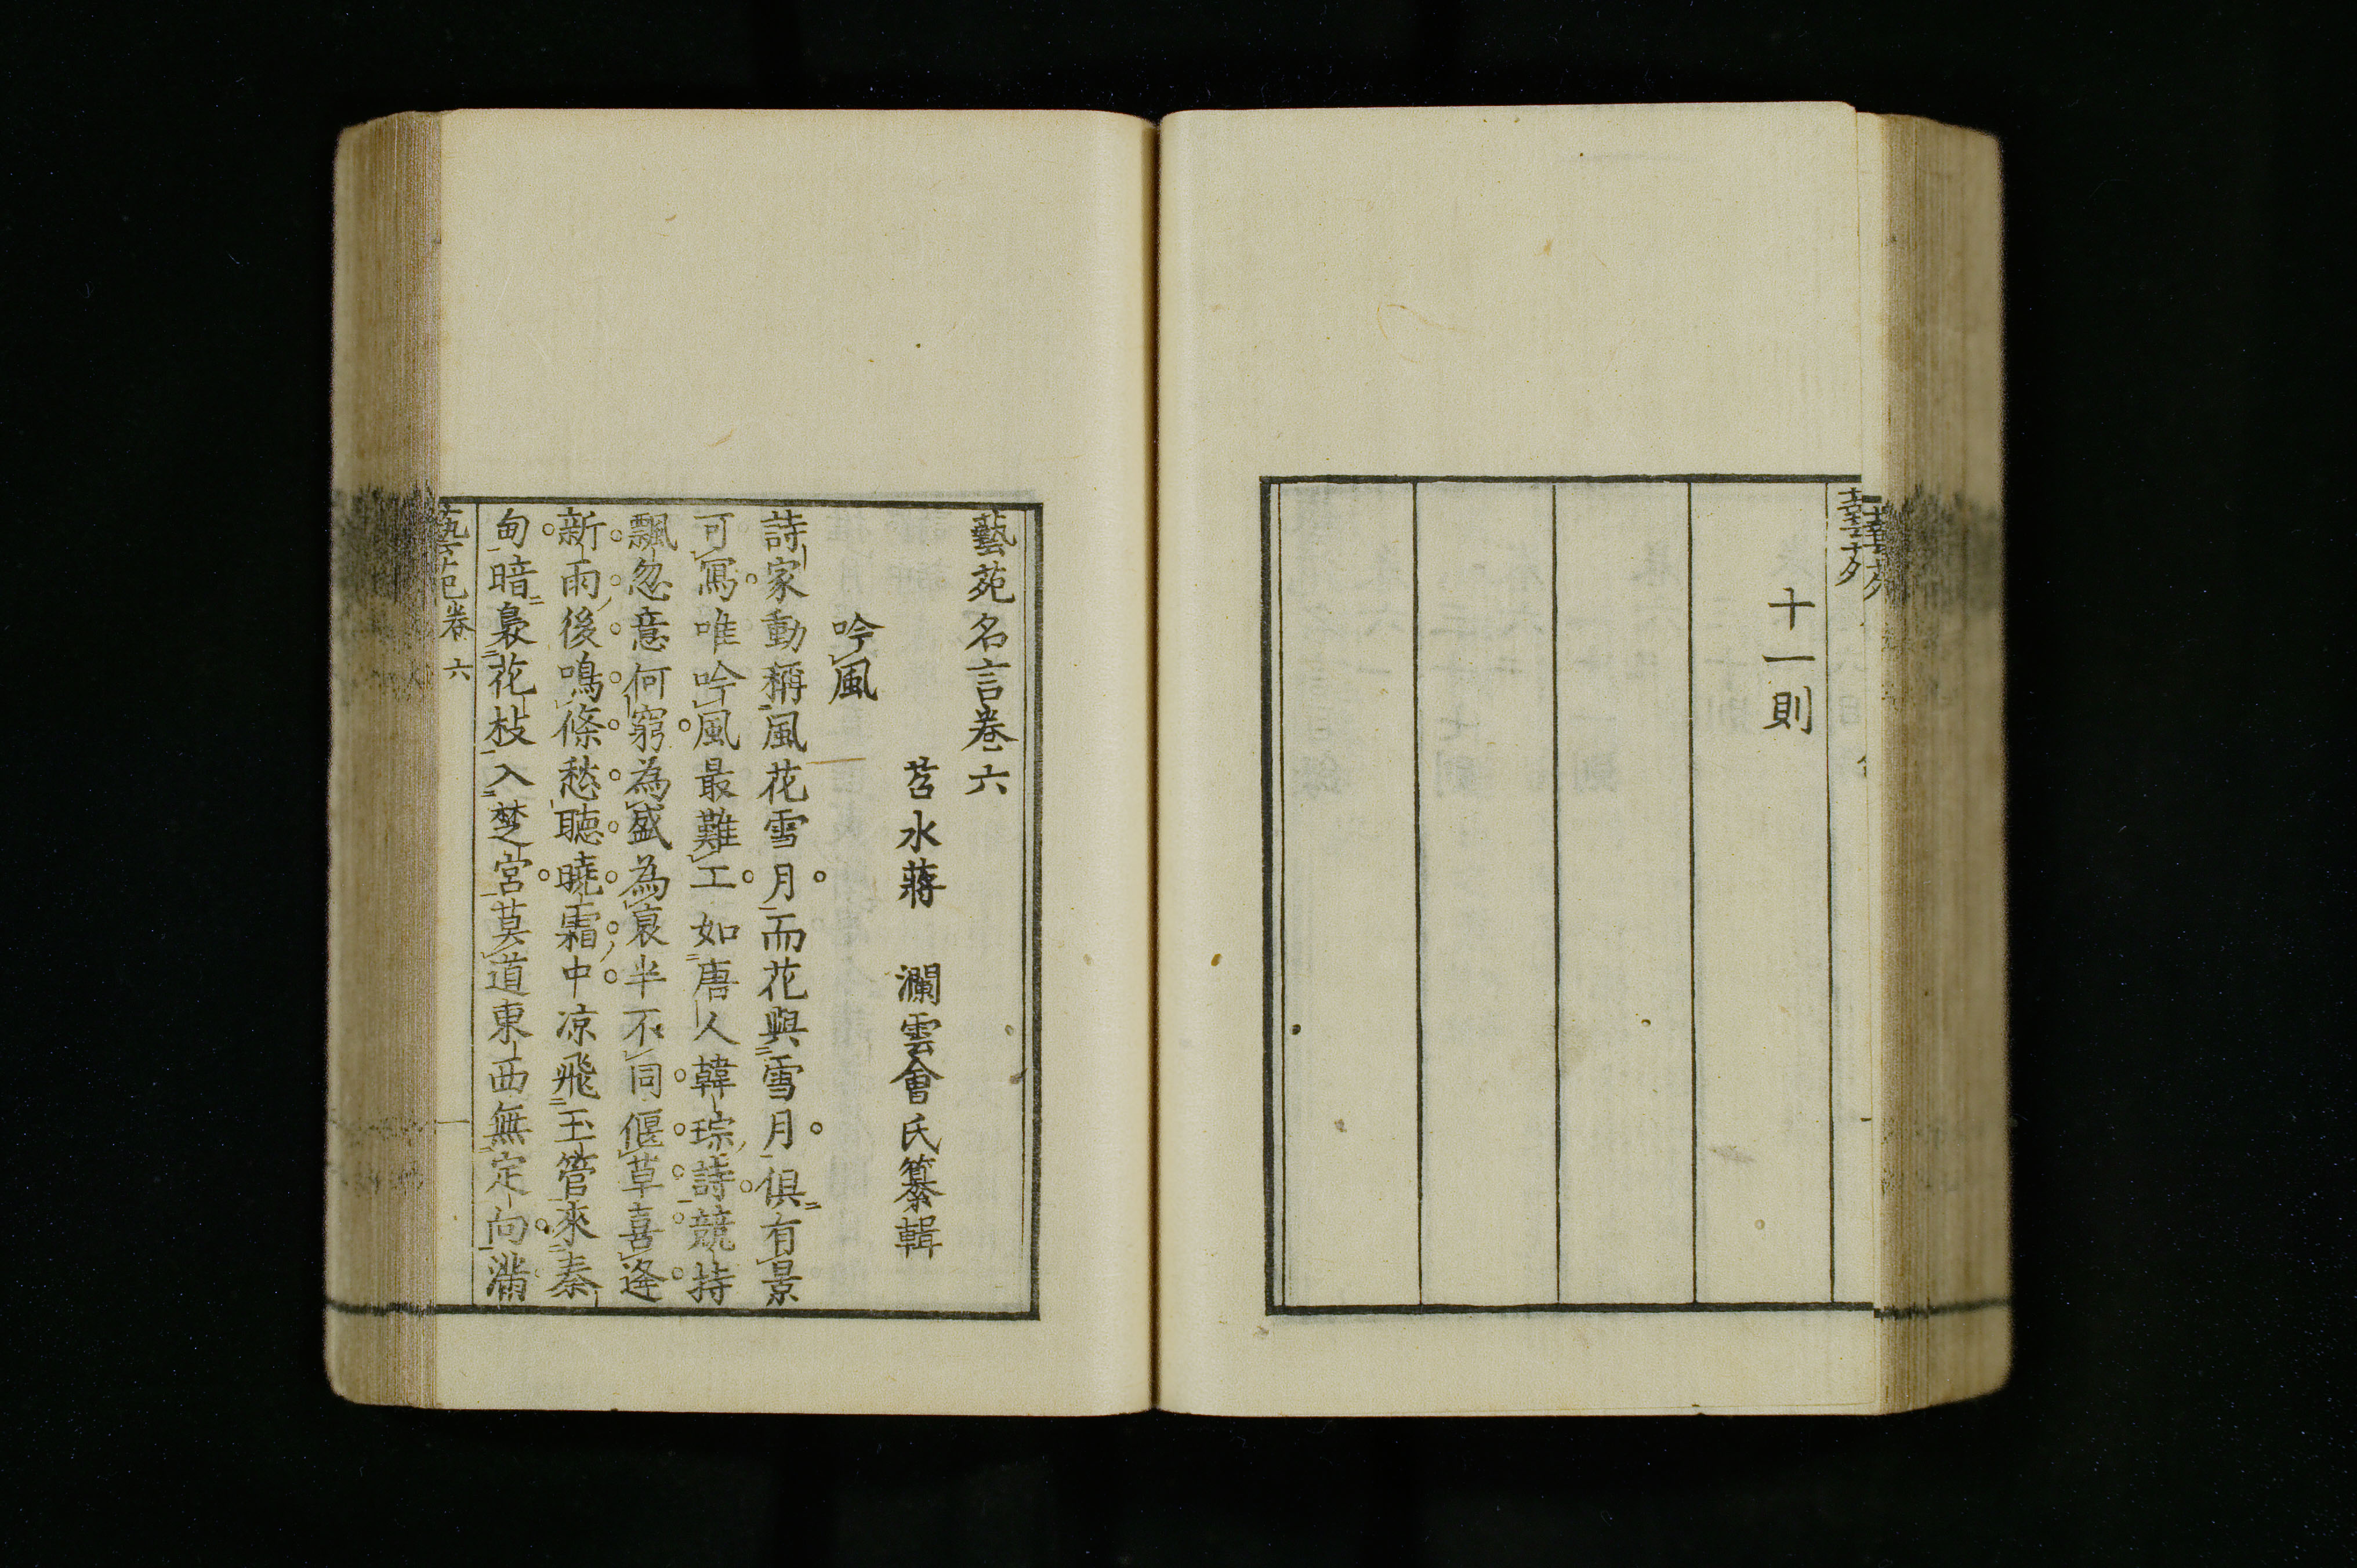 十一則
藝苑名言卷六
苕水蔣　瀾雲會氏纂輯
吟風
詩家動稱風花雪月而花與雪月俱有景
可寫唯吟風最難工如唐人韓琮詩競持
飄忽意何窮為盛為衰半不同偃草喜逢
新雨後鳴條愁聽曉霜中凉飛玉管來秦
甸暗裊花枝入楚宮莫道東西無定向滿
藝苑卷六